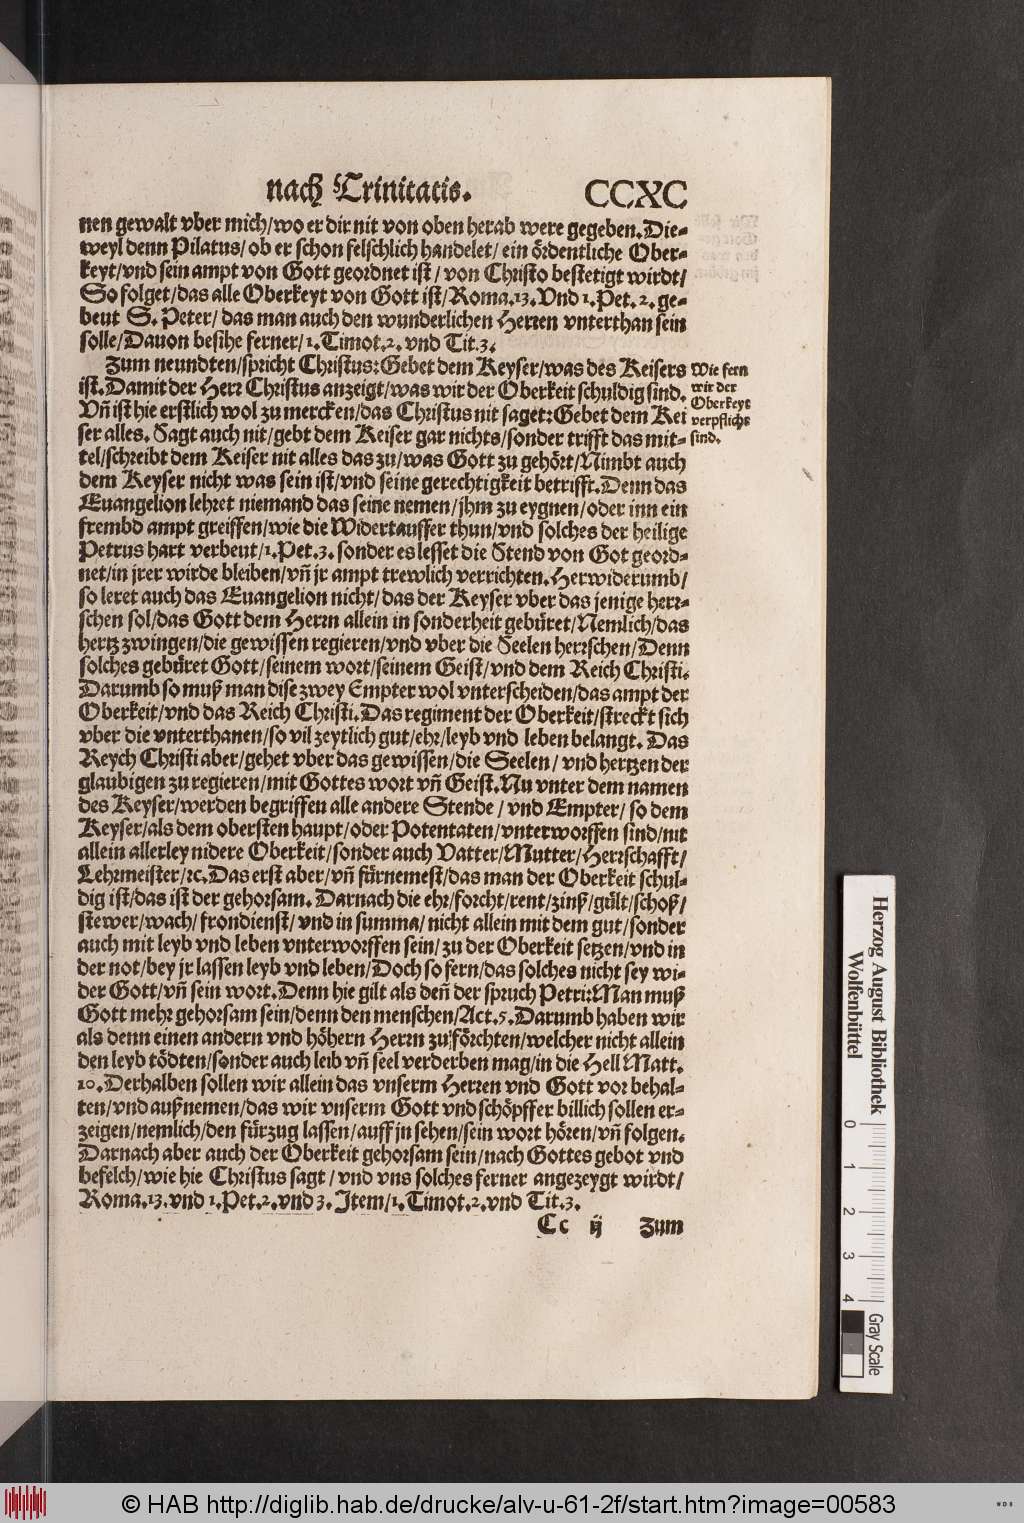 nach Trinitatis. CCXC
nen gewalt vber mich/wo er dir nit von oben herab were gegeben. Die-
weyl denn Pilatus/ob er schon felschlich handelet/ein ördentliche Ober-
keyt/vnd sein ampt von Gott geordnet ist/von Christo bestetigt wirdt/
So folget/das alle Oberkeyt von Gott ist/Roma.13.Vnd 1.Pet.2.ge-
beut S. Peter/das man auch den wunderlichen Herren vnterthan sein
solle/Dauon besihe ferner/1.Timot.2.vnd Tit.3.
Zum neundten/spricht Christus:Gebet dem Keyser/was des Keisers
ist.Damit der Herr Christus anzeigt/was wir der Oberkeit schuldig sind.
Vñ ist hie erstlich wol zu mercken/das Christus nit saget:Gebet dem Kei
ser alles. Sagt auch nit/gebt dem Keiser gar nichts/sonder trifft das mit-
tel/schreibt dem Keiser nit alles das zu/was Gott zu gehört/Nimbt auch
dem Keyser nicht was sein ist/vnd seine gerechtigkeit betrifft.Denn das
Euangelion lehret niemand das seine nemen/jhm zu eygnen/oder inn ein
frembd ampt greiffen/wie die Widertauffer thun/vnd solches der heilige
Petrus hart verbeut/1.Pet.3.sonder es lesset die Stend von Got geord-
net/in jrer wirde bleiben/vñ jr ampt trewlich verrichten.Herwiderumb/
so leret auch das Euangelion nicht/das der Keyser vber das jenige herr-
schen sol/das Gott dem Herrn allein in sonderheit gebüret/Nemlich/das
hertz zwingen/die gewissen regieren/vnd vber die Seelen herrschen/Denn
solches gebüret Gott/seinem wort/seinem Geist/vnd dem Reich Christi.
Darumb so muß man dise zwey Empter wol vnterscheiden/das ampt der
Oberkeit/vnd das Reich Christi.Das regiment der Oberkeit/streckt sich
vber die vnterthanen/so vil zeytlich gut/ehr/leyb vnd leben belangt. Das
Reych Christi aber/gehet vber das gewissen/die Seelen/vnd hertzen der
glaubigen zu regieren/mit Gottes wort vñ Geist.Nu vnter dem namen
des Keyser/werden begriffen alle andere Stende/vnd Empter/so dem
Keyser/als dem obersten haupt/oder Potentaten/vnterworffen sind/nit
allein allerley nidere Oberkeit/sonder auch Vatter/Mutter/Herrschafft/
Lehrmeister/rc.Das erst aber/vñ fürnemest/das man der Oberkeit schul-
dig ist/das ist der gehorsam. Darnach die ehr/forcht/rent/zinß/gült/schoß/
stewer/wach/frondienst/vnd in summa/nicht allein mit dem gut/sonder
auch mit leyb vnd leben vnterworffen sein/zu der Oberkeit setzen/vnd in
der not/bey jr lassen leyb vnd leben/Doch so fern/das solches nicht sey wi-
der Gott/vñ sein wort.Denn hie gilt als deñ der spruch Petri:Man muß
Gott mehr gehorsam sein/denn den menschen/Act.5.Darumb haben wir
als denn einen andern vnd höhern Herrn zu förchten/welcher nicht allein
den leyb tödten/sonder auch leib vñ seel verderben mag/in die Hell Matt.
10.Derhalben sollen wir allein das vnserm Herren vnd Gott vor behal-
ten/vnd außnemen/das wir vnserm Gott vnd schöpffer billich sollen er-
zeigen/nemlich/den fürzug lassen/auff jn sehen/sein wort hören/vñ folgen.
Darnach aber auch der Oberkeit gehorsam sein/nach Gottes gebot vnd
befelch/wie hie Christus sagt/vnd vns solches ferner angezeygt wirdt/
Roma.13.vnd 1.Pet.2.vnd 3.Item/1.Timot.2.vnd Tit.3.
Cc ij Zum
Wie fern
wir der
Oberkeyt
verpflicht
sind.
Herzog August Bibliothek
Wolfenbüttel
0 1 2 3 4
Gray Scale
© HAB http://diglib.hab.de/drucke/alv-u-61-2f/start.htm?image=00583
WDB